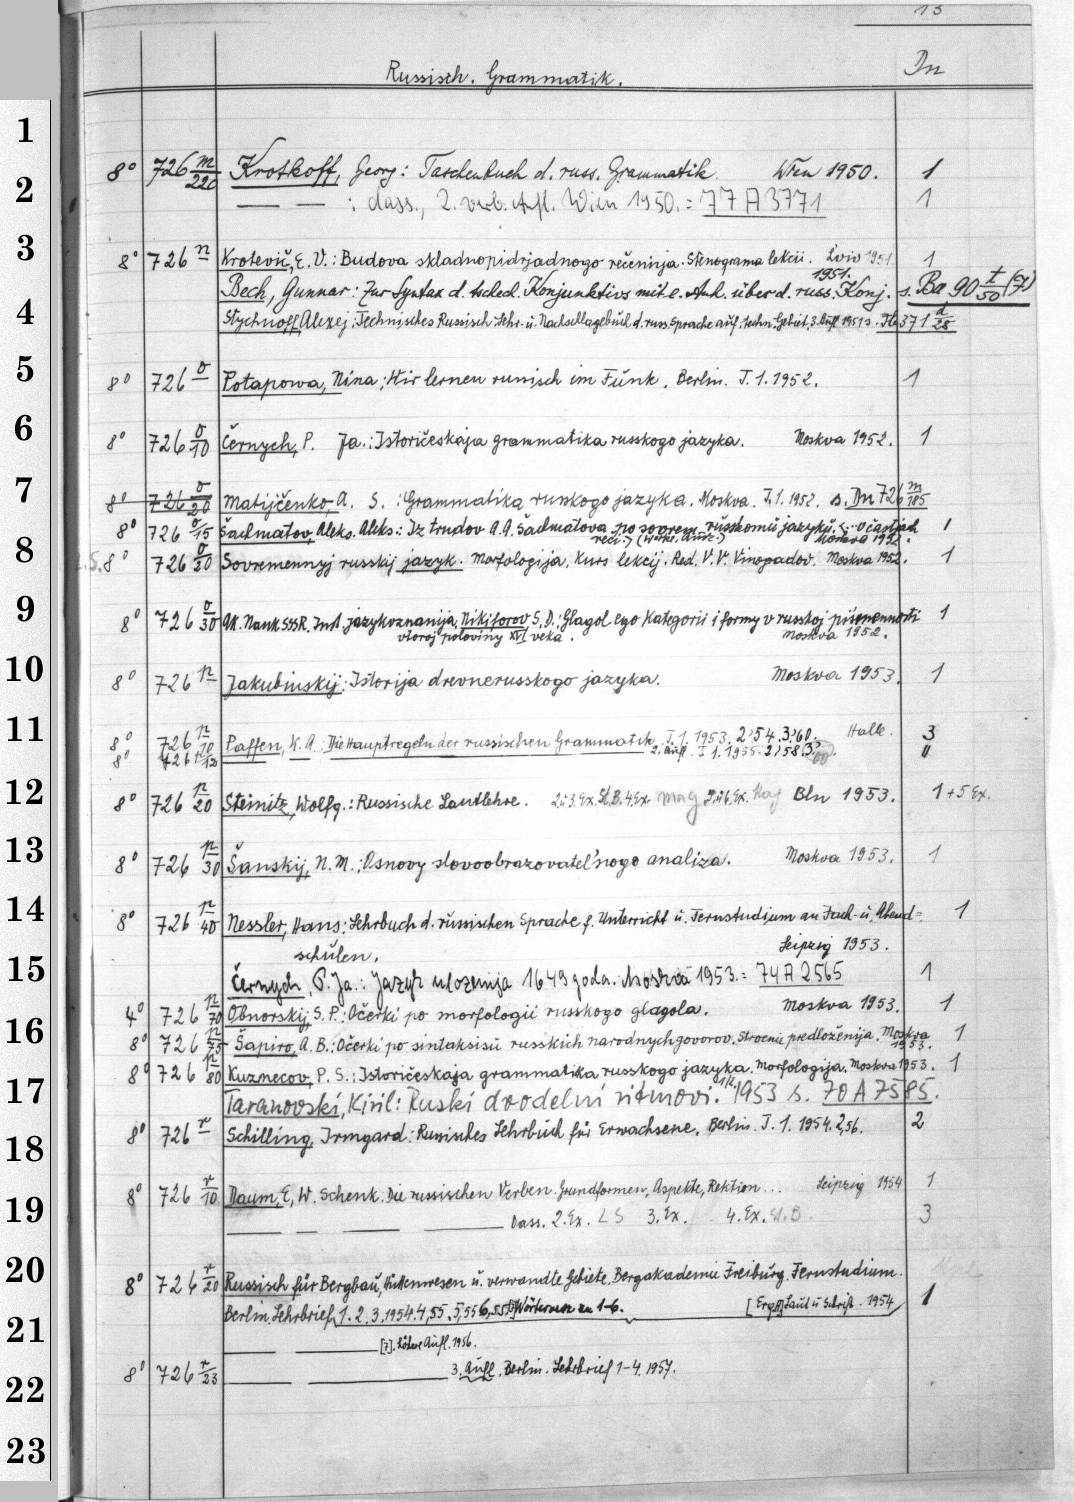 13
Russisch. Grammatik. Dn
1
8° 726 m/220 Krotkoff, Georg: Taschenbuch d. russ. Grammatik. Wien 1950. 1
2
— — : dass., 2. verb. Aufl. Wien 1950. = 77 A 3771 1
3
8° 726 n Krotevič, E. V.: Budova skladnopidrjadnogo rečennja. Stenograma lekcii. Lviv 1951. 1
Bech, Gunnar: Zur Syntax d. tschech. Konjunktivs mit e. Anh. über d. russ. Konj. 1951. s. Ba 90 t/50 (7)
4
Stychnoff, Alexej: Technisches Russisch. Lehr- u. Nachschlagebuch d. russ. Sprache auf. techn. Gebiet. 3. Aufl 1951 s. 371 d/28
5
8° 726 o Potapowa, Nina: Wir lernen russisch im Funk. Berlin. T. 1. 1952. 1
6
8° 726 o/10 Černych, P. Ja.: Istoričeskaja grammatika russkogo jazyka. Moskva 1952. 1
7
8° 726 o/20 Matijčenko, A. S.: Grammatika russkogo jazyka. Moskva. T. 1. 1952. s. Dn 726 m/185
8° 726 o/15 Šachmatov, Aleks. Aleks.: Iz trudov A. A. Šachmatova po sovrem. russkomu jazyku. (: o častjach
reči:) Moskva 1952. 1
8
8° 726 o/20 Sovremennyj russkij jazyk. Morfologija. Kurs lekcij. Red. V. V. Vinogradov. Moskva 1952. 1
9
8° 726 o/30 Ak. Nauk SSSR. Inst. jazykoznanija. Nikiforov S. D.: Glagol ego Kategorii i formy v russkoj pis'mennosti 1
vtoroj poloviny XVI veka. Moskva 1952.
10
8° 726 p Jakubinskij: Istorija drevnerusskogo jazyka. Moskva 1953. 1
11
8° 726 p/10 Paffen, K. A.: Die Hauptregeln der russischen Grammatik. T. 1. 1953. 2:54. 3:60. Halle. 3
8° 726 2. Aufl. T. 1. 1955. 2:58. 3: 60 "
12
8° 726 p/20 Steinitz, Wolfg.: Russische Lautlehre. 2.u.3. Ex. St.B. 4. Ex. Mag 5. u. 6. Ex. Mag Bln 1953. 1 + 5 Ex.
13
8° 726 p/30 Šanskij, N. M.: Osnovy slovoobrazovatel'nogo analiza. Moskva 1953. 1
14
8° 726 p/40 Nessler, Hans: Lehrbuch d. russischen Sprache f. Unterricht u. Fernstudium an Fach- u. Abend= 1
schulen. Leipzig 1953.
15
Černych, P. Ja.: Jazyk uloženija 1649 goda. Moskva 1953. = 74 A 2565 1
4° 726 p/70 Obnorskij, S. P.: Očerki po morfologii russkogo glagola. Moskva 1953. 1
16
8° 726 p/75 Šapiro, A. B.: Očerki po sintaksisu russkich narodnych govorov. Stroenie predloženija. Moskva 1953. 1
8° 726 p/80 Kuznecov, P. S.: Istoričeskaja grammatika russkogo jazyka. Morfologija. Moskva 1953. 1
17
Taranovski, Kiril: Ruski dvodelni ritmovi. 1/2. 1953 s. 70 A 7585.
8° 726 r Schilling, Irmgard: Russisches Lehrbuch für Erwachsene. Berlin. T. 1. 1954. 2,56. 2
18
8° 726 r/10 Daum, E, W. Schenk. Die russischen Verben. Grundformen, Aspekte, Rektion... Leipzig 1954 1
19
— — — Dass. 2. Ex. LS 3. Ex. 4. Ex. St. B. 3
20
8° 726 r/20 Russisch für Bergbau, Hüttenwesen u. verwandte Gebiete. Bergakademie Freiburg. Fernstudium.
Berlin. Lehrbrief 1. 2. 3. 1954. 4,55. 5,55 6,55 Wörterverz. zu 1-6. [Erg.] Laut u Schrift. 1954 1
21
— — [7]. Aufl. 1956.
22
8° 726 r/23 — — 3. Aufl. Berlin. Lehrbrief 1-4. 1957.
23